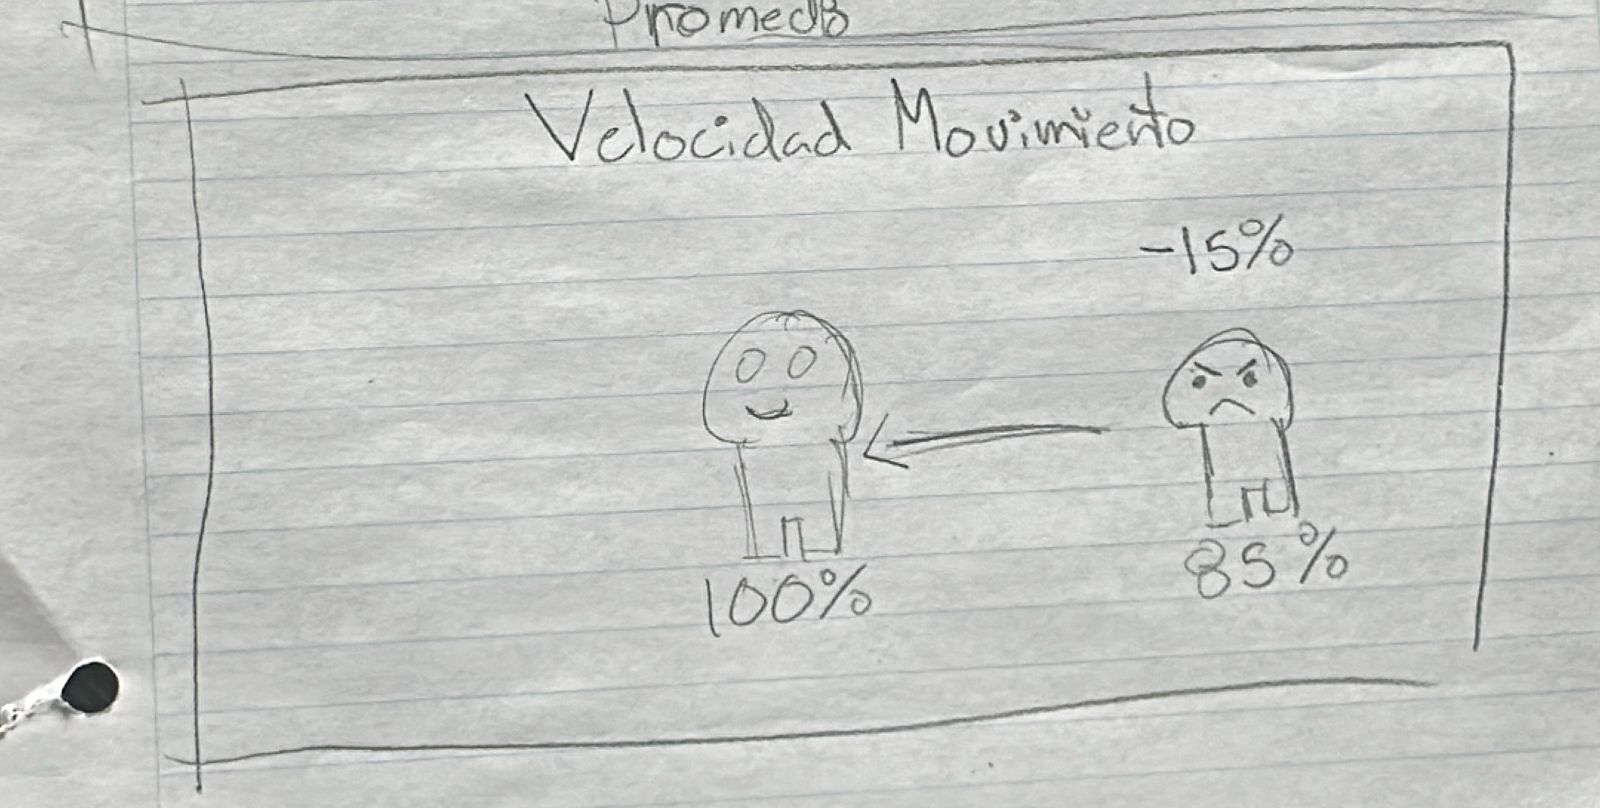 Promedio
Velocidad Movimiento
-15%
100%
85%